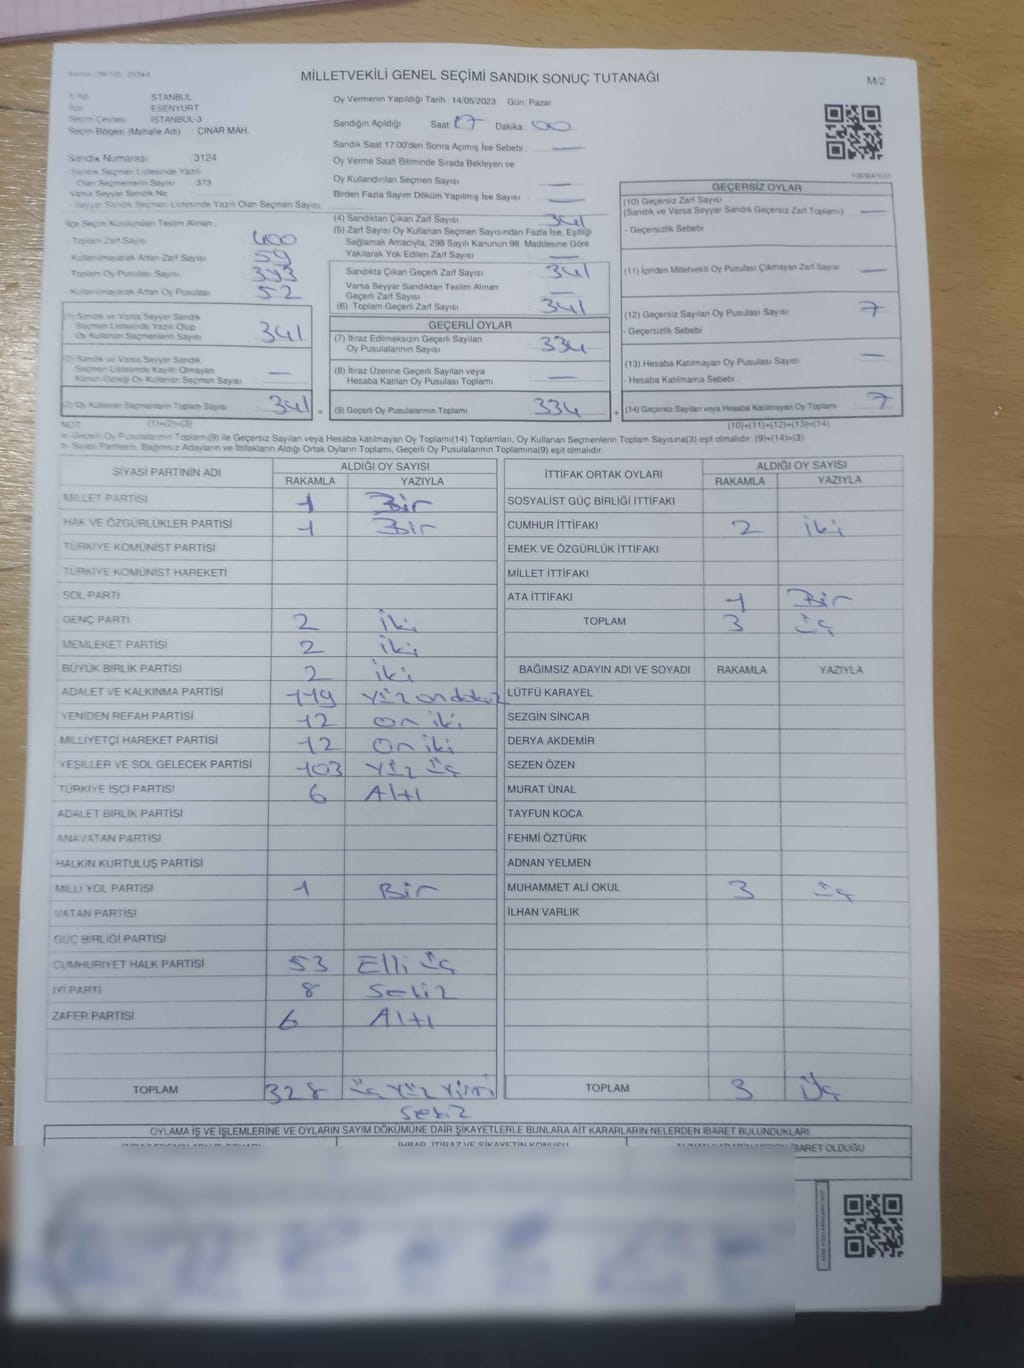 MİLLETVEKİLİ GENEL SEÇİMİ SANDIK SONUÇ TUTANAĞI
M/2
İSTANBUL
ESENYURT
Seçim Çevresi İSTANBUL-3
Seçim Bölgesi (Mahalle Adı) : ÇINAR MAH.
Sandık Numarası : 3124
Sandık Seçmen Listesinde Yazılı
Olan Seçmenlerin Sayısı : 373
Varsa Seyyar Sandık No
- Seyyar Sandık Seçmen Listesinde Yazılı Olan Seçmen Sayısı :
İlçe Seçim Kurulundan Teslim Alınan ;
- Toplam Zarf Sayısı 400
- Kullanılmayarak Artan Zarf Sayısı 59
- Toplam Oy Pusulası Sayısı 393
- Kullanılmayarak Artan Oy Pusulası 52
(1) Sandık ve Varsa Seyyar Sandık
Seçmen Listesinde Yazılı Olup
Oy Kullanan Seçmenlerin Sayısı 341
(2) Sandık ve Varsa Seyyar Sandık
Seçmen Listesinde Kayıtlı Olmayan
Kanun Gereği Oy Kullanan Seçmen Sayısı —
(3) Oy Kullanan Seçmenlerin Toplam Sayısı 341 =
Oy Vermenin Yapıldığı Tarih : 14/05/2023 Gün: Pazar
Sandığın Açıldığı Saat: 17 Dakika : 00
Sandık Saat 17:00'den Sonra Açımış İse Sebebi : —
Oy Verme Saati Bitiminde Sırada Bekleyen ve
Oy Kullandırılan Seçmen Sayısı —
Birden Fazla Sayım Döküm Yapılmış İse Sayısı —
(4) Sandıktan Çıkan Zarf Sayısı 341
(5) Zarf Sayısı Oy Kullanan Seçmen Sayısından Fazla İse, Eşitliği
Sağlamak Amacıyla, 298 Sayılı Kanunun 98. Maddesine Göre
Yakılarak Yok Edilen Zarf Sayısı —
Sandıkta Çıkan Geçerli Zarf Sayısı 341
Varsa Seyyar Sandıktan Teslim Alınan
Geçerli Zarf Sayısı —
(6) Toplam Geçerli Zarf Sayısı 341
GEÇERLİ OYLAR
(7) İtiraz Edilmeksizin Geçerli Sayılan
Oy Pusulalarının Sayısı 334
(8) İtiraz Üzerine Geçerli Sayılan veya
Hesaba Katılan Oy Pusulası Toplamı —
(9) Geçerli Oy Pusulalarının Toplamı 334 +
GEÇERSİZ OYLAR
(10) Geçersiz Zarf Sayısı
(Sandık ve Varsa Seyyar Sandık Geçersiz Zarf Toplamı) —
- Geçersizlik Sebebi
(11) İçinden Milletvekili Oy Pusulası Çıkmayan Zarf Sayısı —
(12) Geçersiz Sayılan Oy Pusulası Sayısı 7
- Geçersizlik Sebebi
(13) Hesaba Katılmayan Oy Pusulası Sayısı —
- Hesaba Katılmama Sebebi :
(14) Geçersiz Sayılan veya Hesaba Katılmayan Oy Toplamı 7
NOT: (1)+(2)=(3) (10)+(11)+(12)+(13)=(14)
a- Geçerli Oy Pusulalarının Toplamı(9) ile Geçersiz Sayılan veya Hesaba katılmayan Oy Toplamı(14) Toplamları, Oy Kullanan Seçmenlerin Toplam Sayısına(3) eşit olmalıdır. (9)+(14)=(3)
b- Siyasi Partilerin, Bağımsız Adayların ve İttifakların Aldığı Ortak Oyların Toplamı, Geçerli Oy Pusulalarının Toplamına(9) eşit olmalıdır.
SİYASİ PARTİNİN ADI ALDIĞI OY SAYISI
RAKAMLA YAZIYLA
MİLLET PARTİSİ 1 Bir
HAK VE ÖZGÜRLÜKLER PARTİSİ 1 Bir
TÜRKİYE KOMÜNİST PARTİSİ
TÜRKİYE KOMÜNİST HAREKETİ
SOL PARTİ
GENÇ PARTİ 2 iki
MEMLEKET PARTİSİ 2 iki
BÜYÜK BİRLİK PARTİSİ 2 iki
ADALET VE KALKINMA PARTİSİ 119 Yüz ondokuz
YENİDEN REFAH PARTİSİ 12 On iki
MİLLİYETÇİ HAREKET PARTİSİ 12 On iki
YEŞİLLER VE SOL GELECEK PARTİSİ 103 Yüz üç
TÜRKİYE İŞÇİ PARTİSİ 6 Altı
ADALET BİRLİK PARTİSİ
ANAVATAN PARTİSİ
HALKIN KURTULUŞ PARTİSİ
MİLLİ YOL PARTİSİ 1 Bir
VATAN PARTİSİ
GÜÇ BİRLİĞİ PARTİSİ
CUMHURİYET HALK PARTİSİ 53 Elli üç
İYİ PARTİ 8 Sekiz
ZAFER PARTİSİ 6 Altı
TOPLAM 328 üç Yüz Yirmi
Sekiz
İTTİFAK ORTAK OYLARI ALDIĞI OY SAYISI
RAKAMLA YAZIYLA
SOSYALİST GÜÇ BİRLİĞİ İTTİFAKI
CUMHUR İTTİFAKI 2 iki
EMEK VE ÖZGÜRLÜK İTTİFAKI
MİLLET İTTİFAKI
ATA İTTİFAKI 1 Bir
TOPLAM 3 üç
BAĞIMSIZ ADAYIN ADI VE SOYADI RAKAMLA YAZIYLA
LÜTFÜ KARAYEL
SEZGİN SİNCAR
DERYA AKDEMİR
SEZEN ÖZEN
MURAT ÜNAL
TAYFUN KOCA
FEHMİ ÖZTÜRK
ADNAN YELMEN
MUHAMMET ALİ OKUL 3 üç
İLHAN VARLIK
TOPLAM 3 Üç
OYLAMA İŞ VE İŞLEMLERİNE VE OYLARIN SAYIM DÖKÜMÜNE DAİR ŞİKAYETLERLE BUNLARA AİT KARARLARIN NELERDEN İBARET BULUNDUKLARI
İHBAR, İTİRAZ VE ŞİKAYETİN KONUSU
İBARET OLDUĞU